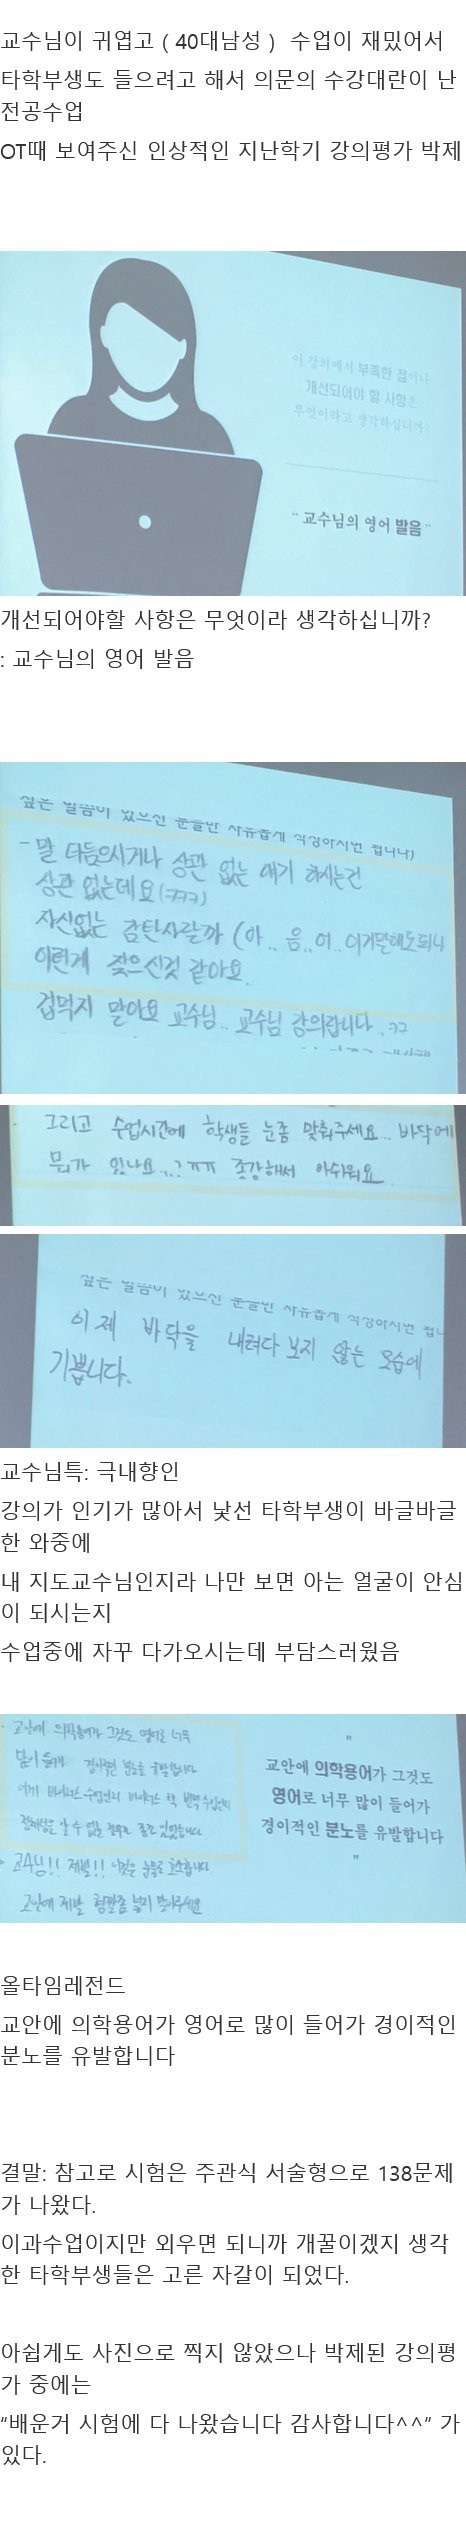 교수님이 귀엽고 ( 40대남성 )  수업이 재밌어서
타학부생도 들으려고 해서 의문의 수강대란이 난
전공수업
OT때 보여주신 인상적인 지난학기 강의평가 박제
이 강의에서 부족한 점이나
개선되어야 할 사항은
무엇이라고 생각하십니까?
" 교수님의 영어 발음 "
개선되어야할 사항은 무엇이라 생각하십니까?
: 교수님의 영어 발음
싶은 말씀이 있으신 분들만 자유롭게 작성하시면 됩니다)
- 말 더듬으시거나 상관 없는 얘기 하시는건
상관 없는데요 (ㅋㅋㅋ)
자신없는 감탄사랄까 (아.. 음.. 어.. 이거말해도되나
이런게 잦으신것 같아요.
겁먹지 말아요 교수님.. 교수님 강의랍니다. ㅋㅋ
그리고 수업시간에 학생들 눈좀 맞춰주세요... 바닥에
뭐가 있나요...? ㅠㅠ 종강해서 아쉬워요.
싶은 말씀이 있으신 분들만 자유롭게 작성하시면 됩니
이제 바닥을 내려다 보지 않는 모습에
기쁩니다.
교수님특: 극내향인
강의가 인기가 많아서 낯선 타학부생이 바글바글
한 와중에
내 지도교수님인지라 나만 보면 아는 얼굴이 안심
이 되시는지
수업중에 자꾸 다가오시는데 부담스러웠음
교안에 의학용어가 그것도 영어로 너무
많이 들어가 경이적인 분노를 유발합니다
교수님!! 제발!!
"
교안에 의학용어가 그것도
영어로 너무 많이 들어가
경이적인 분노를 유발합니다
"
올타임레전드
교안에 의학용어가 영어로 많이 들어가 경이적인
분노를 유발합니다
결말: 참고로 시험은 주관식 서술형으로 138문제
가 나왔다.
이과수업이지만 외우면 되니까 개꿀이겠지 생각
한 타학부생들은 고른 자갈이 되었다.
아쉽게도 사진으로 찍지 않았으나 박제된 강의평
가 중에는
“배운거 시험에 다 나왔습니다 감사합니다^^” 가
있다.